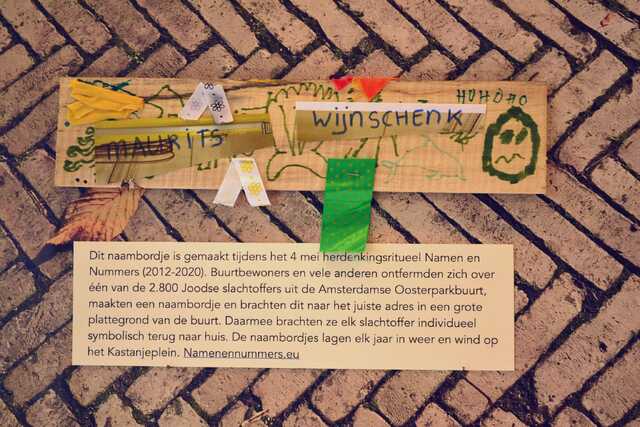 HOHOHO
MAURITS
WIJNSCHENK
Dit naambordje is gemaakt tijdens het 4 mei herdenkingsritueel Namen en
Nummers (2012-2020). Buurtbewoners en vele anderen ontfermden zich over
één van de 2.800 Joodse slachtoffers uit de Amsterdamse Oosterparkbuurt,
maakten een naambordje en brachten dit naar het juiste adres in een grote
plattegrond van de buurt. Daarmee brachten ze elk slachtoffer individueel
symbolisch terug naar huis. De naambordjes lagen elk jaar in weer en wind op
het Kastanjeplein. Namenennummers.eu